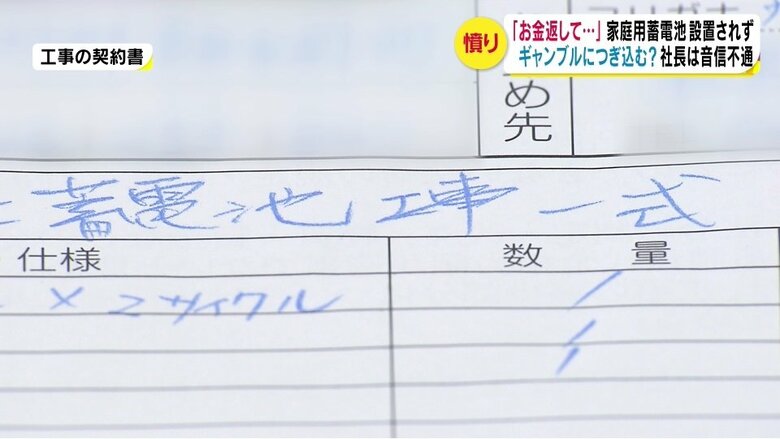 工事の契約書
憤り
「お金返して…」家庭用蓄電池 設置されず
ギャンブルにつぎ込む？社長は音信不通
め先
蓄電池 工事一式
仕様
数量
× 2サイクル
1
1